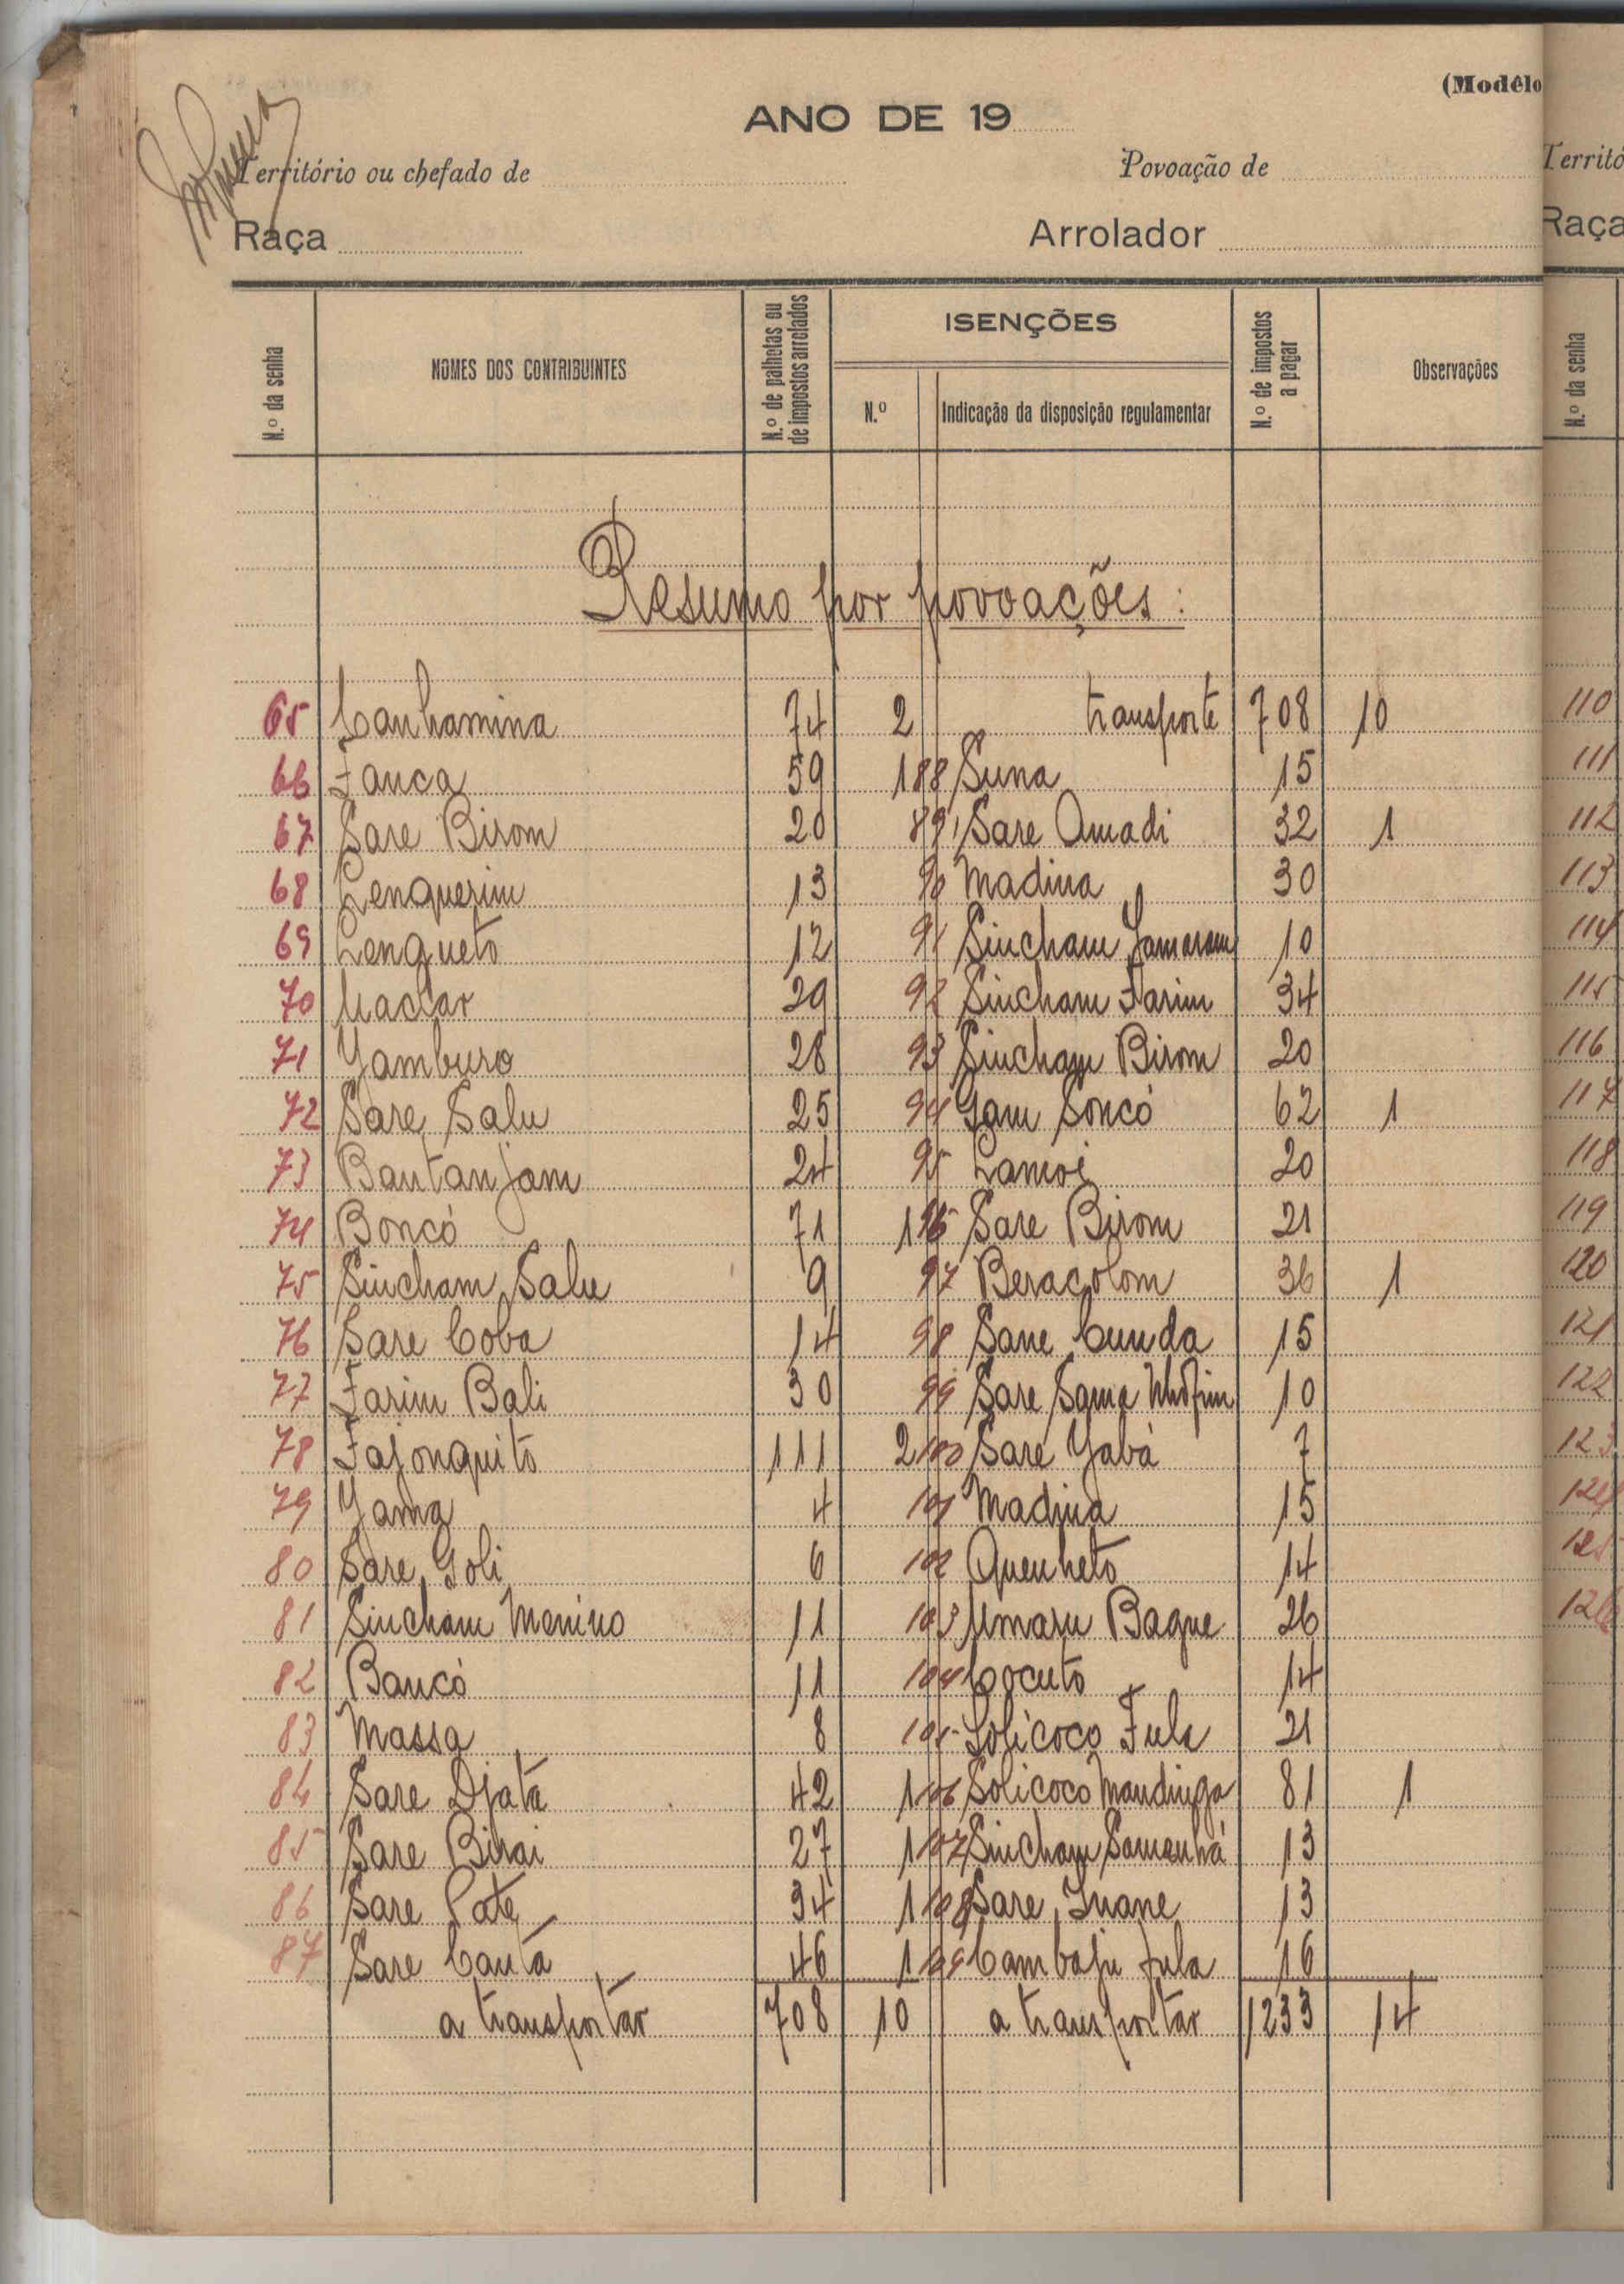 (Modêlo
ANO DE 19
Território ou chefado de Povoação de
Raça Arrolador
N.º da senha NOMES DOS CONTRIBUINTES N.º de palhotas ou de impostos arrolados ISENÇÕES N.º Indicação da disposição regulamentar N.º de impostos a pagar Observações
Resumo por povoações:
65 Canhamina 74 2 transporte 708 10
66 Fanca 59 1 88 Suna 15
67 Sare Birom 20 89 Sare Amadi 32 1
68 Lenquerim 13 90 Madina 30
69 Lenqueto 12 91 Sincham 10
70 29 92 Sincham Farim 34
71 Yamburo 28 93 Sincham Birom 20
72 Sare Salu 25 94 Gam Soncó 62 1
73 Bantanjam 24 95 Lamoi 20
74 Boncó 71 1 96 Sare Birom 21
75 Sincham Salu 9 97 Beracolom 36 1
76 Sare Coba 14 98 Sane Cunda 15
77 Farim Bali 30 99 Sare Sama 10
78 Fajonquito 111 2 100 Sare Yabá 7
79 Yama 4 101 Madina 15
80 Sare Goli 6 102 Quenheto 14
81 Sincham Menino 11 103 Umaru Baque 26
82 Bancó 11 104 Cocuto 14
83 Massa 8 105 Solicoco Fula 21
84 Sare Djata 42 1 106 Solicoco Mandinga 81 1
85 Sare Birai 27 1 107 Sincham Samanhá 13
86 Sare Pate 34 1 108 Sare Inane 13
87 Sare Cautá 46 1 109 Cambaju Fula 16
a transportar 708 10 a transportar 1233 14
Territó
Raça
N.º da senha
110
111
112
113
114
115
116
117
118
119
120
121
122
123
124
125
126